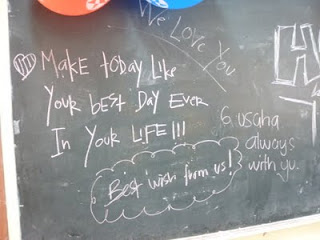 We Love You
Make today Like
Your best Day Ever
In Your LIFE!!!
Best wish from us!
G. usaha
always
with yu..